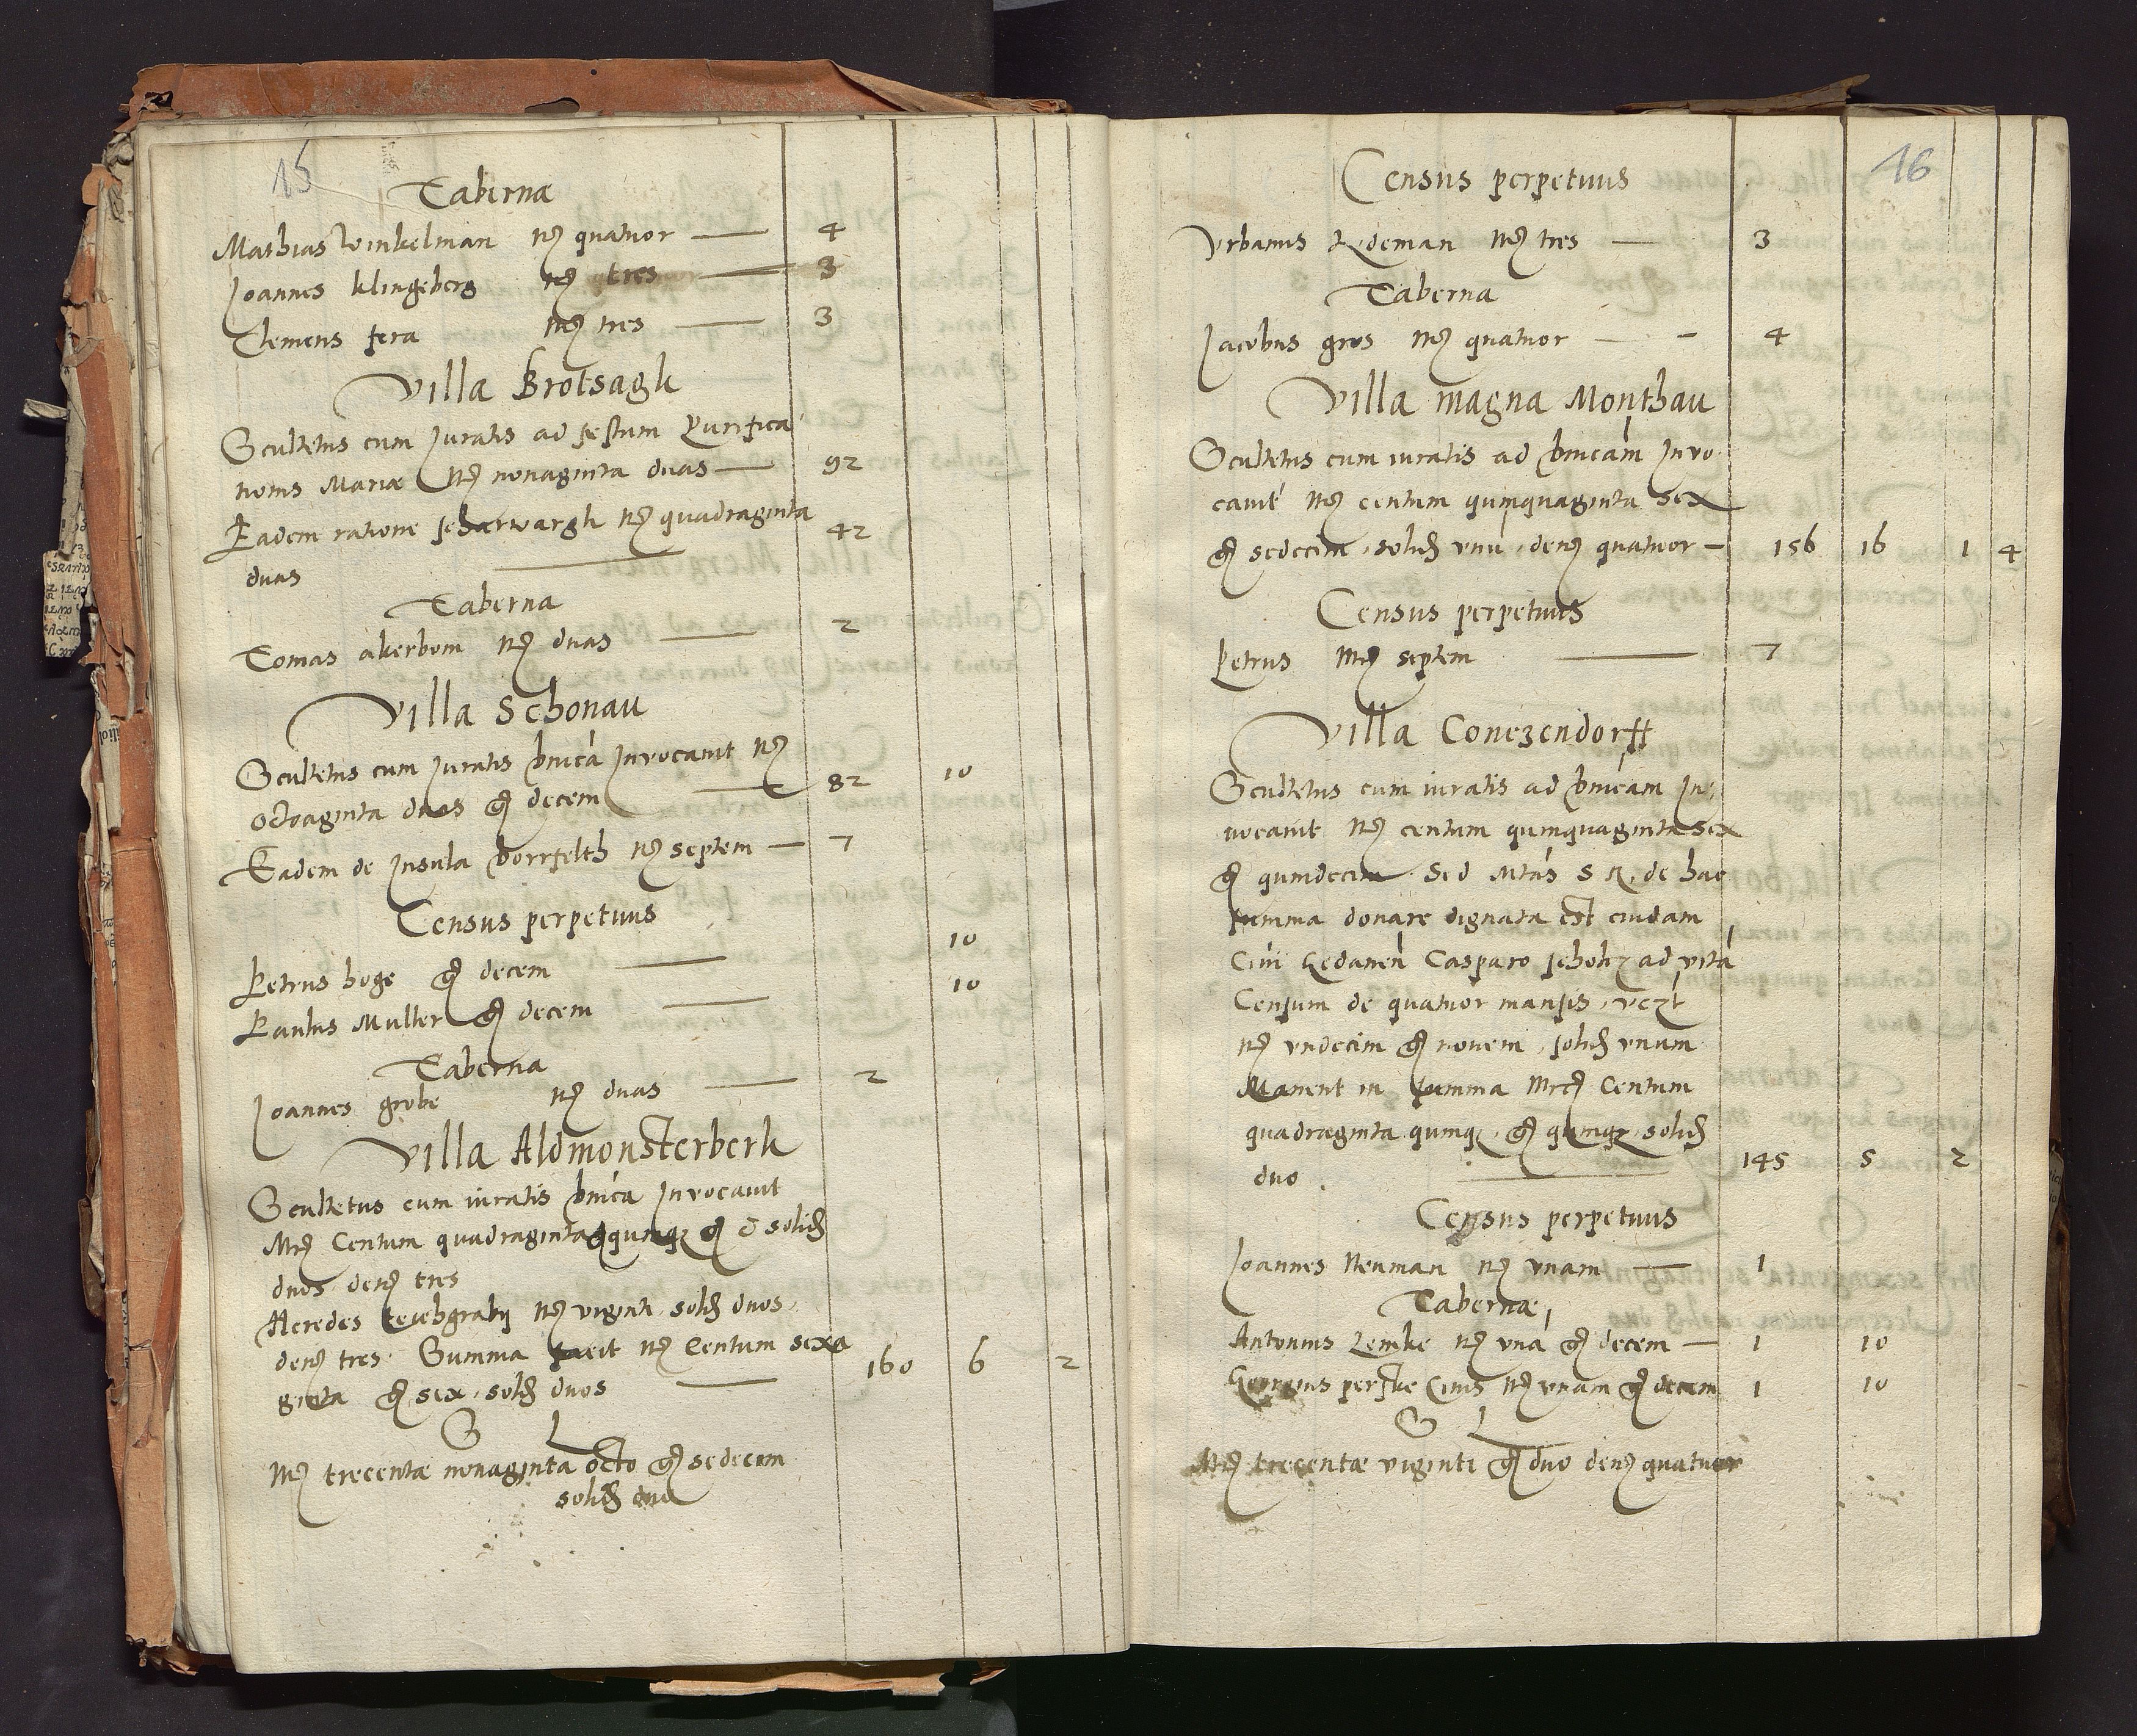 15
Taberna
Mathias Winkelman mrc quatuor — 4
Joannes klingeberg mrc tres — 3
Clemens fera mrc tres — 3
Villa Brotsagk
Scultetus cum Juratis ad festum Purifica
tionis Mariæ mrc nonaginta duas — 92
Eadem ratione scharwargk mrc quadraginta 42
duas —
Taberna
Tomas akerbom mrc duas — 2
Villa Schonau
Scultetus cum Juratis bnica Invocavit mrc
octoaginta duas gr decem — 82 10
Eadem de Insula borrfelth mrc septem — 7
Census perpetuus
Petrus hoge gr decem — 10
Paulus Muller gr decem — 10
Taberna
Joannes grobe mrc duas — 2
Villa Aldmonsterberk
Scultetus cum iuratis bnica Invocavit
Mrc Centum quadraginta quinq gr solid
duos denr tres
Heredes mrc viginti solid duos
denr tres Summa facit mrc Centum sexa
ginta gr sex solid duos — 160 6 2
G L
Mrc trecentæ nonaginta octo gr sedecim
solid duo
16
Census perpetuus
Urbanus Redeman mrc tres — 3
Taberna
Jacobus gros mrc quatuor — 4
Villa magna Monthau
Scultetus cum iuratis ad bnicam Invo
cavit mrc centum quinquaginta sex
gr sedecim solid unu denr quatuor — 156 16 1 4
Census perpetuus
Petrus mrc septem — 7
Villa Conezendorff
Scultetus cum iuratis ad bnicam In
vocavit mrc centum quinquaginta sex
gr quindecim Sed Mtas S R de hac
summa donare dignata est cuidam
Civi Gedanen Casparo scholtz ad vita
Censum de quatuor mansis vczt
mrc undecim gr novem solid unum
Manent in summa Mrc Centum
quadraginta quinq gr quinq solid
duo — 145 5 2
Census perpetuus
Joannes Neuman mrc unam — 1
Tabernæ
Antonius Lemke mrc una gr decem — 1 10
Georgius perske Civis mrc unam gr decem 1 10
G L
Mrc trecentæ viginti gr duo denr quatuor